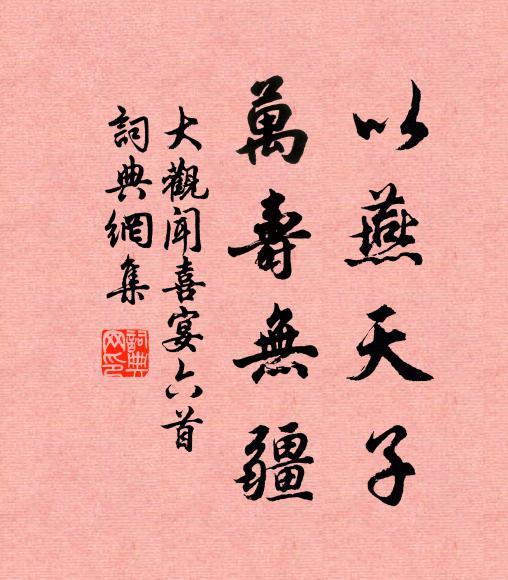 以燕天子
萬壽無疆
大觀闻喜宴六首
詞典網集
詞典網印